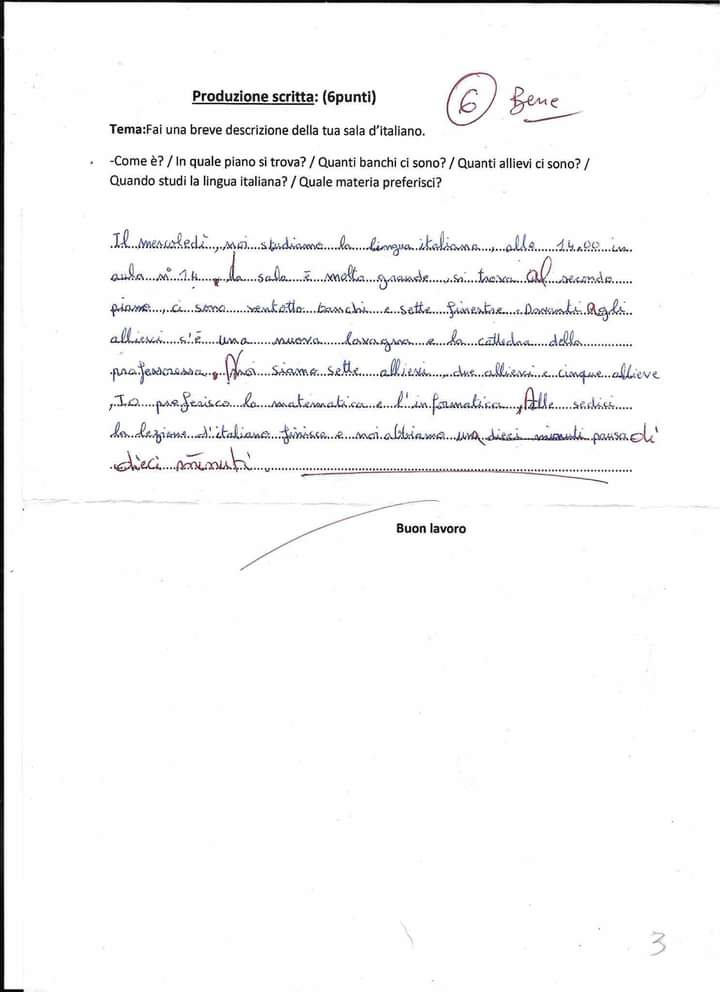 Produzione scritta: (6punti)
6 Bene
Tema:Fai una breve descrizione della tua sala d'italiano.
-Come è? / In quale piano si trova? / Quanti banchi ci sono? / Quanti allievi ci sono? /
Quando studi la lingua italiana? / Quale materia preferisci?
Il mercoledì, noi studiamo la lingua italiana, alle 14.00 in
aula n° 14, la sala è molto grande, si trova al secondo
piano, ci sono ventotto banchi e sette finestre. Davanti Agli
allievi c'è una nuova lavagna e la cattedra della
professoressa, Noi siamo sette allievi, due allievi e cinque allieve
, Io preferisco la matematica e l'informatica, Alle sedici
la lezione d'italiano finisce e noi abbiamo una dieci minuti pausa di
dieci minuti.
Buon lavoro
3